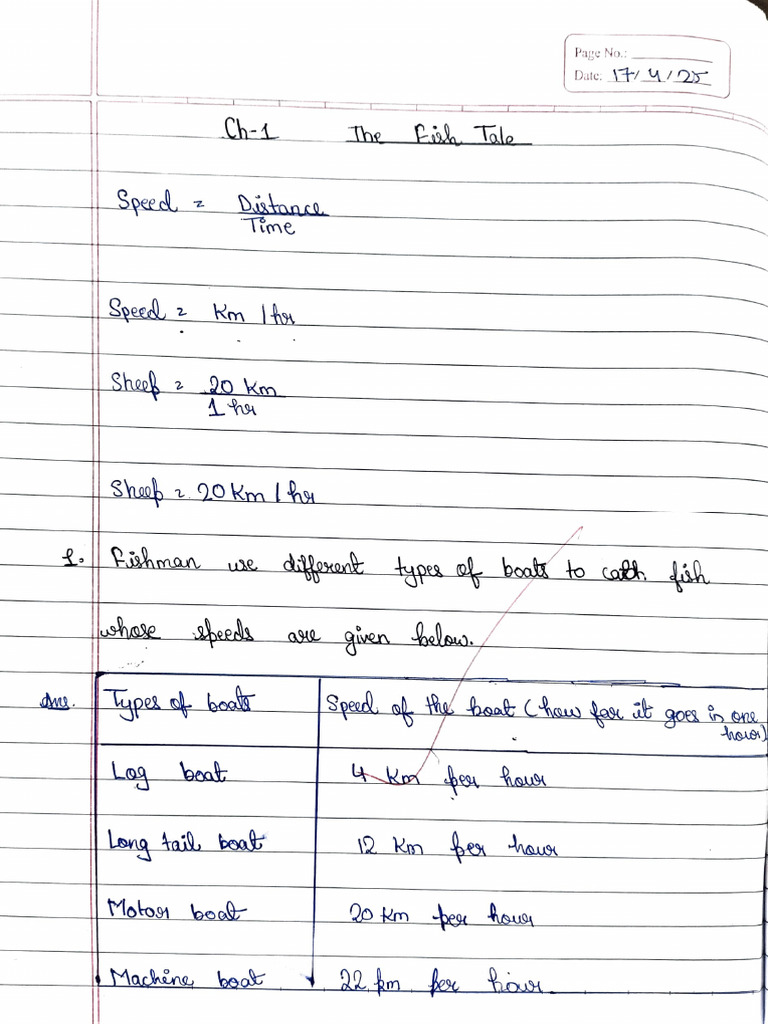 Page No.:
Date: 17/4/25
Ch-1 The Fish Tale
Speed = Distance
Time
Speed = Km / hr
Sheep = 20 Km
1 hr
Sheep = 20 Km / hr
1. Fishman use different types of boats to cath fish
whose speeds are given below.
Ans. Types of boats Speed of the boat (how far it goes in one
hour)
Log boat 4 Km per hour
Long tail boat 12 Km per hour
Motor boat 20 Km per hour
Machine boat 22 km per hour